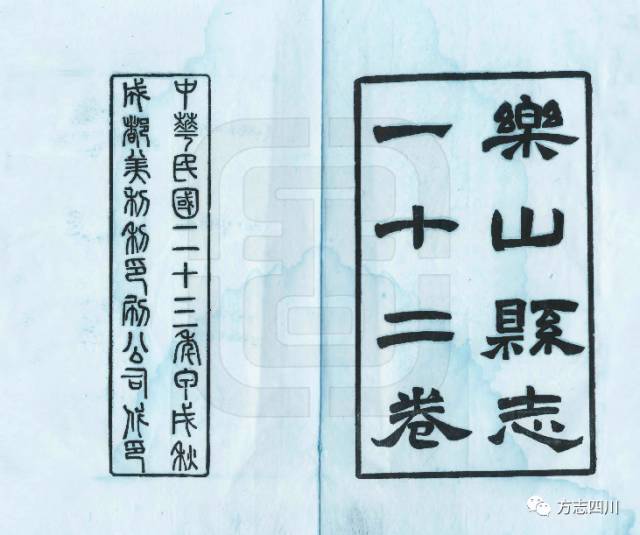 樂山縣志
一十二卷
中華民國二十三年甲戌秋
成都美利利印刷公司代印
方志四川